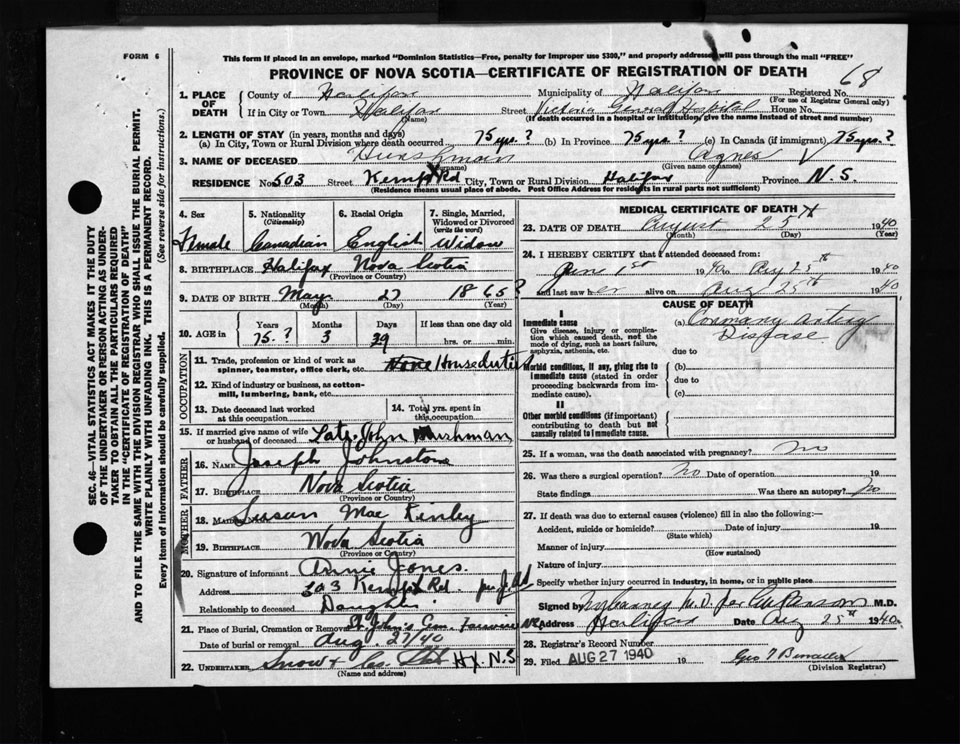 FORM 6
This form if placed in an envelope, marked "Dominion Statistics—Free, penalty for improper use $300," and properly addressed will pass through the mail "FREE"
PROVINCE OF NOVA SCOTIA—CERTIFICATE OF REGISTRATION OF DEATH
68
1. PLACE OF DEATH
County of Halifax Municipality of Halifax Registered No.
(For use of Registrar General only)
If in City or Town Halifax Street Victoria General Hospital House No.
(Name) (If death occurred in a hospital or institution, give name instead of street and number)
2. LENGTH OF STAY (in years, months and days)
(a) In City, Town or Rural Division where death occurred 75 yrs.? (b) In Province 75 yrs.? (c) In Canada (if immigrant) 75 yrs.?
3. NAME OF DECEASED Agnes
(Surname) (Given name or names)
RESIDENCE No. 503 Street Kempt Rd City, Town or Rural Division Halifax Province N.S.
(Residence means usual place of abode. Post Office Address for residents in rural parts not sufficient)
4. Sex
Female
5. Nationality
(Citizenship)
Canadian
6. Racial Origin
English
7. Single, Married, Widowed or Divorced
(write the word)
Widow
8. BIRTHPLACE Halifax Nova Scotia
(Province or Country)
9. DATE OF BIRTH May 27 1865?
(Month) (Day) (Year)
10. AGE in
Years Months Days If less than one day old
75.? 3 hrs. or min.
OCCUPATION
11. Trade, profession or kind of work as spinner, teamster, office clerk, etc. None Houseduties
12. Kind of industry or business, as cotton-mill, lumbering, bank, etc.
13. Date deceased last worked at this occupation
14. Total yrs. spent in this occupation
15. If married give name of wife or husband of deceased Late John Hushman
FATHER
16. NAME Joseph Johnstone
17. BIRTHPLACE Nova Scotia
(Province or Country)
MOTHER
18. MAIDEN NAME Susan Mac Kinley
19. BIRTHPLACE Nova Scotia
(Province or Country)
20. Signature of informant Annie Jones.
Address Kempt Rd. per
Relationship to deceased Daughter
21. Place of Burial, Cremation or Removal St. John's Cem. Fairview
Date of burial or removal Aug. 27/40
22. UNDERTAKER Snow & Co. Hx. N.S
(Name and address)
MEDICAL CERTIFICATE OF DEATH
23. DATE OF DEATH August 25th 1940
(Month) (Day) (Year)
24. I HEREBY CERTIFY that I attended deceased from:
1st 1940 to Aug 25th 1940
and last saw her alive on Aug 25th 1940
CAUSE OF DEATH
I
Immediate cause
Give disease, injury or complication which caused death, not the mode of dying, such as heart failure, asphyxia, asthenia, etc.
(a) Coronary artery Disease
due to
Morbid conditions, if any, giving rise to immediate cause (stated in order proceeding backwards from immediate cause).
(b)
due to
(c)
II
Other morbid conditions (if important) contributing to death but not causally related to immediate cause.
25. If a woman, was the death associated with pregnancy? no
26. Was there a surgical operation? no Date of operation 19
State findings Was there an autopsy? no
27. If death was due to external causes (violence) fill in also the following:—
Accident, suicide or homicide? Date of injury 19
(State which)
Manner of injury
(How sustained)
Nature of injury
Specify whether injury occurred in industry, in home, or in public place
Signed by M.D. for M.D.
Address Halifax Date Aug 25th 1940
28. Registrar's Record Number
29. Filed AUG 27 1940 19
(Division Registrar)
SEC. 46—VITAL STATISTICS ACT MAKES IT THE DUTY
OF THE UNDERTAKER OR PERSON ACTING AS UNDER-
TAKER TO OBTAIN ALL THE PARTICULARS REQUIRED
IN THE "CERTIFICATE OF REGISTRATION OF DEATH"
AND TO FILE THE SAME WITH THE DIVISION REGISTRAR WHO SHALL ISSUE THE BURIAL PERMIT.
WRITE PLAINLY WITH UNFADING INK. THIS IS A PERMANENT RECORD.
Every item of information should be carefully supplied. (See reverse side for instructions.)